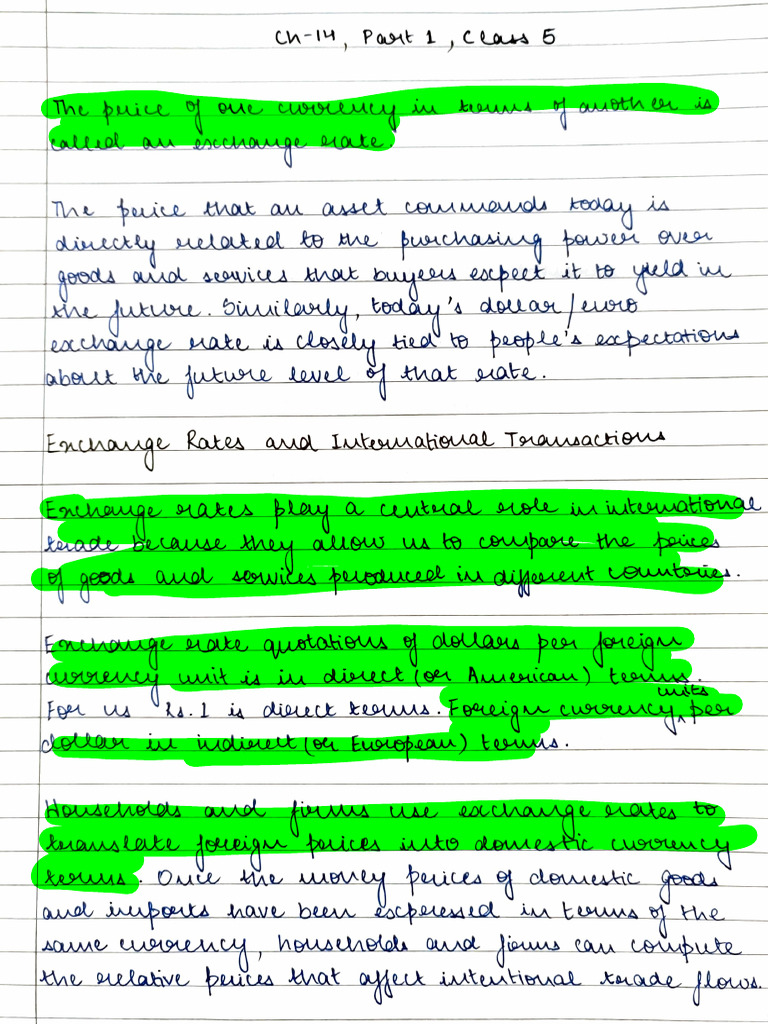 Ch-14, Part 1, Class 5
The price of one currency in terms of another is
called an exchange rate.
The price that an asset commands today is
directly related to the purchasing power over
goods and services that buyers expect it to yield in
the future. Similarly, today's dollar/euro
exchange rate is closely tied to people's expectations
about the future level of that rate.
Exchange Rates and International Transactions
Exchange rates play a central role in international
trade because they allow us to compare the prices
of goods and services produced in different countries.
Exchange rate quotations of dollars per foreign
currency unit is in direct (or American) terms.
For us Rs. 1 is direct terms. Foreign currency units per
dollar in indirect (or European) terms.
Households and firms use exchange rates to
translate foreign prices into domestic currency
terms. Once the money prices of domestic goods
and imports have been expressed in terms of the
same currency, households and firms can compute
the relative prices that affect intentional trade flows.